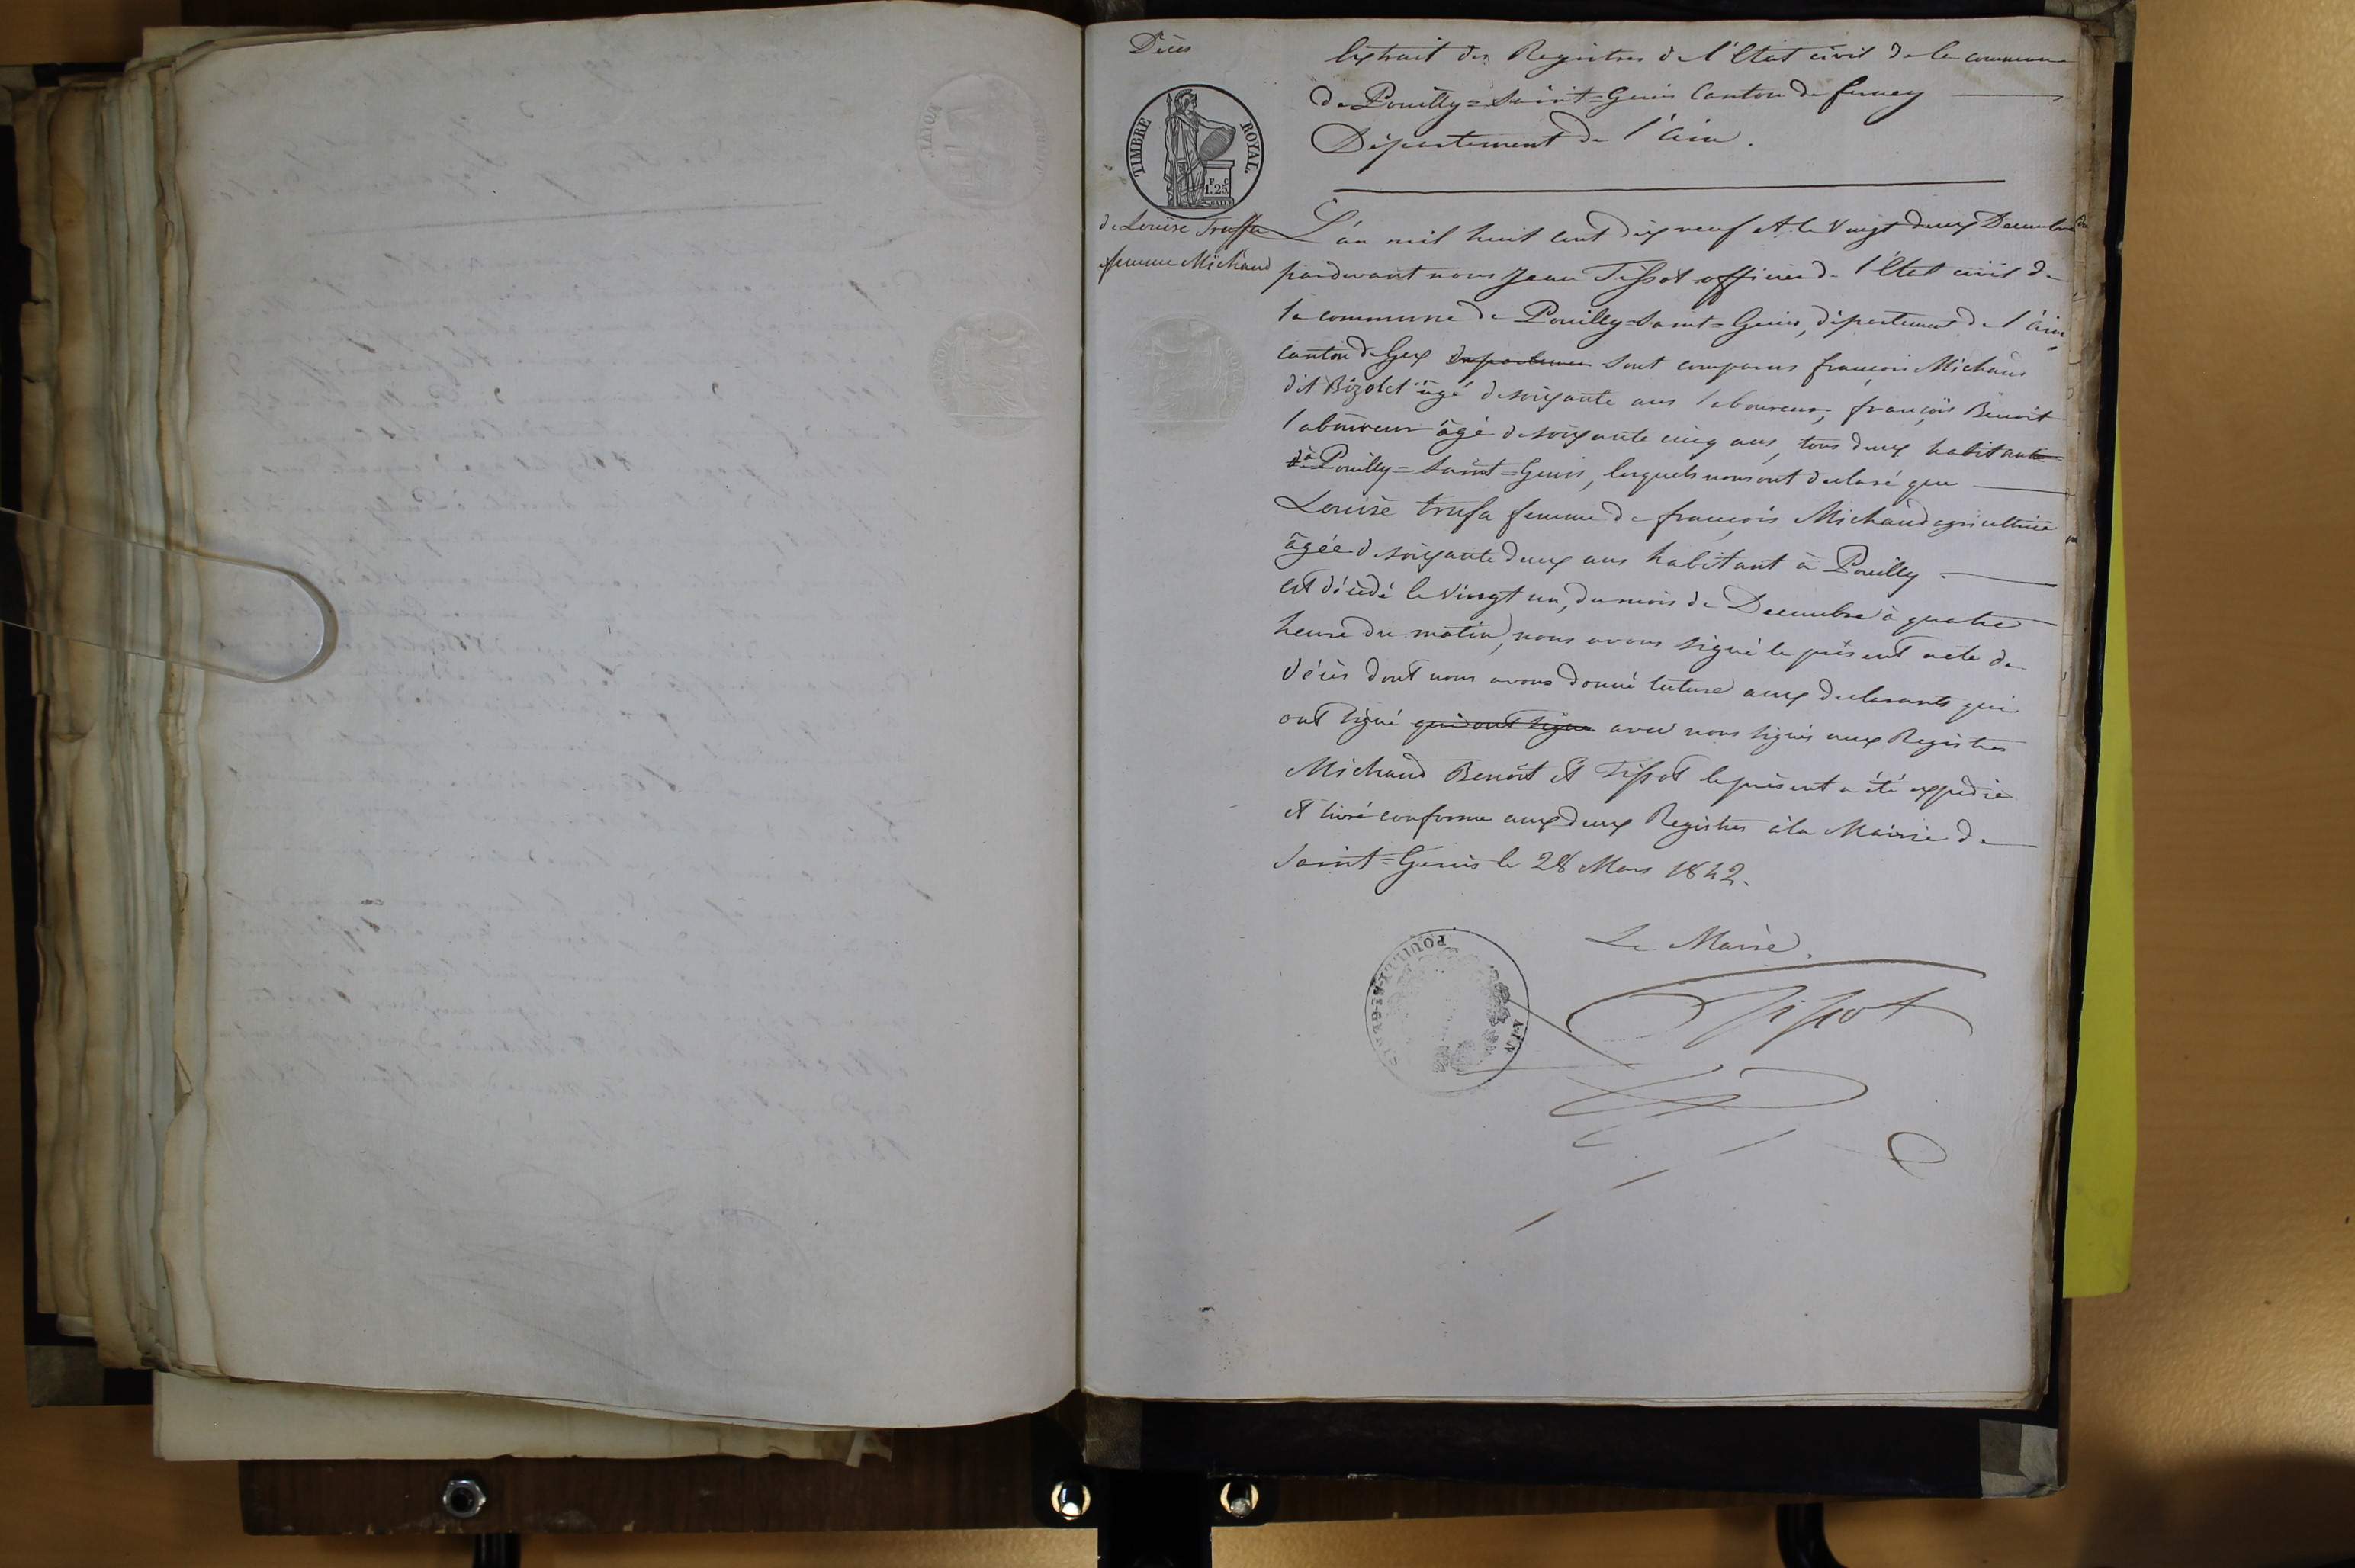 Décès
TIMBRE ROYAL
F. C.
1.25
de Louise Truffa
femme Michaud
Extrait des Registres de l'Etat civil de la commune
de Pouilly=Saint=Genis Canton de ferney
Département de l'ain.
L'an mil huit cent dix neuf et le Vingt deux Decembre
pardevant nous Jean Tissot officier de l'Etat civil de
la commune de Pouilly=Saint=Genis, département de l'ain,
canton de Gex departemen sont comparus françois Michaud
dit Bizolet âgé de soixante ans laboureur, françois Benoit
laboureur âgé de soixante cinq ans, tous deux habitants
à Pouilly=Saint=Genis, lesquels nous ont declaré que
Louise trufa femme de françois Michaud agriculteur
âgée de soixante deux ans habitant à Pouilly.
est décédé le Vingt un, du mois de Decembre à quatre
heure du matin, nous avons signé le présent acte de
décès dont nous avons donné lecture aux declarants qui
ont signé qui ont signé avec nous signés aux Registres
Michaud Benoit et Tissot le présent a été expédié
et livré conforme aux deux Registres à la Mairie de
Saint=Genis le 28 Mars 1842.
Le Maire.
Tissot
POUILLY-ST-GENIS
AIN